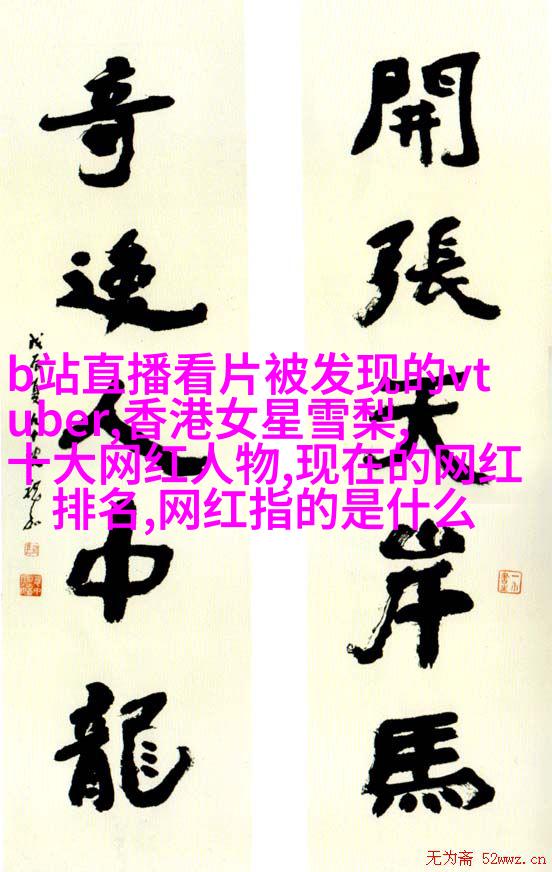 開張天岸馬
奇逸人中龍
b站直播看片被发现的vt
uber,香港女星雪梨,
十大网红人物,现在的网红
排名,网红指的是什么
无为斋 52wwz.cn